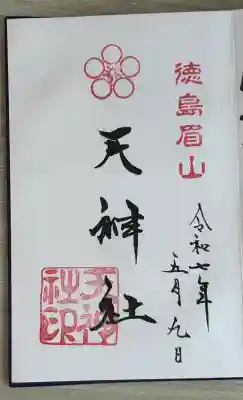 徳島眉山
令和七年
五月九日
天神社
天神社印